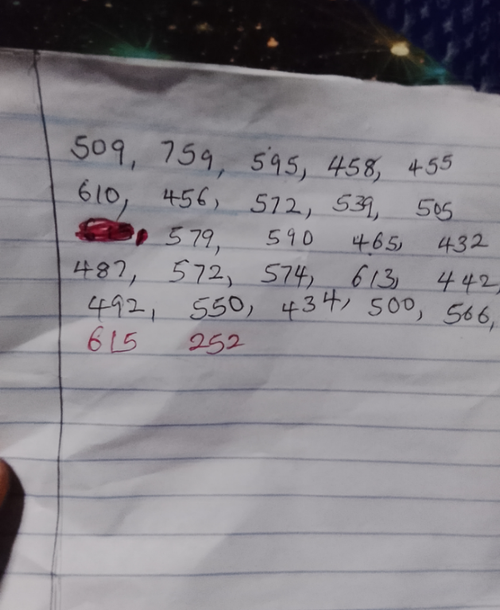 509, 759, 595, 458, 455
610, 456, 572, 539, 505
, 579, 590 465, 432
487, 572, 574, 613, 442,
492, 550, 434, 500, 566,
615 252